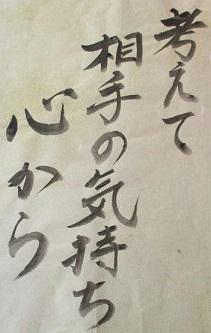 考えて
相手の気持ち
心から